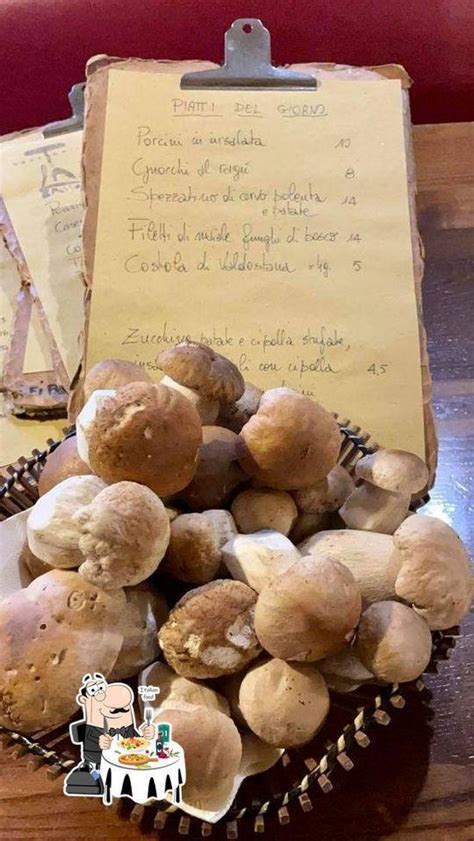 PIATTI DEL GIORNO
Porcini in insalata 10
Gnocchi al ragù 8
Spezzatino di cervo polenta
e patate 14
Filetti di maiale funghi di bosco 14
Costola di Valdostana 5
Zucchine patate e cipolla stufate,
con cipolla 4,5
Italian
food